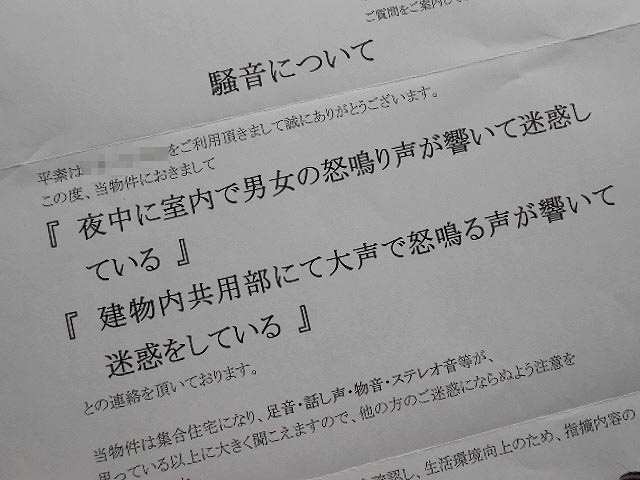 ご質問をご案内して
騒音について
平素は をご利用頂きまして誠にありがとうございます。
この度、当物件におきまして
『 夜中に室内で男女の怒鳴り声が響いて迷惑し
ている 』
『 建物内共用部にて大声で怒鳴る声が響いて
迷惑をしている 』
との連絡を頂いております。
当物件は集合住宅になり、足音・話し声・物音・ステレオ音等が、
思っている以上に大きく聞こえますので、他の方のご迷惑にならぬよう注意を
確認し、生活環境向上のため、指摘内容の